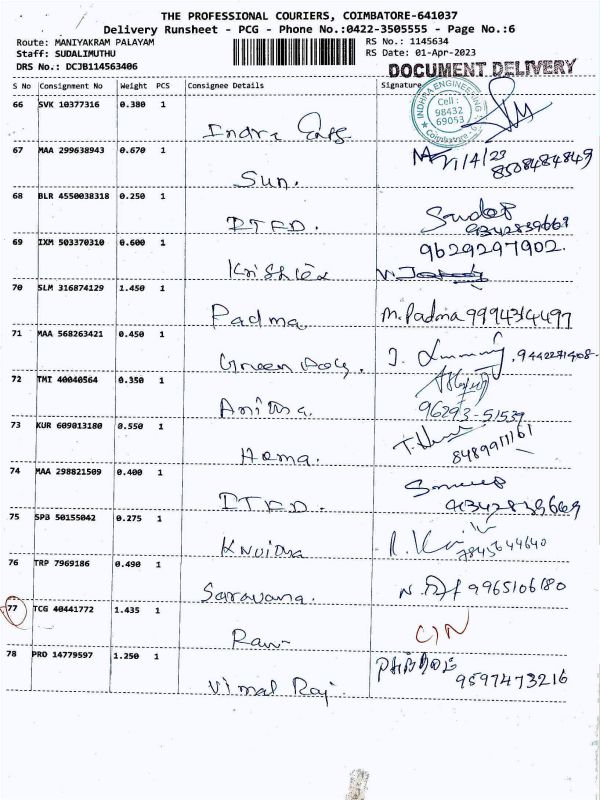 THE PROFESSIONAL COURIERS, COIMBATORE-641037
Delivery Runsheet - PCG - Phone No.:0422-3505555 - Page No.:6
Route: MANIYAKRAM PALAYAM RS No.: 1145634
Staff: SUDALIMUTHU RS Date: 01-Apr-2023
DRS No.: DCJB114563406 DOCUMENT DELIVERY
S No Consignment No Weight PCS Consignee Details Signature
INDHRA ENGINEERING
Cell :
98432
69053
Coimbatore-6
66 SVK 10377316 0.380 1
Indra Eng
67 MAA 299638943 0.670 1 1/4/23
8508484849
Sun.
68 BLR 4550038318 0.250 1 Sudeep
9342839669
ITFD.
69 IXM 503370310 0.600 1 9629297902.
70 SLM 316874129 1.450 1 M. Padma 9994314497
Padma
71 MAA 568263421 0.450 1 9442271408-
Green
72 TMI 40040564 0.350 1
96293-51539
Anitha.
73 KUR 609013180 0.550 1 T. Hema
8489911161
Hema.
74 MAA 298821509 0.400 1
9342839669
ITFD.
75 SPB 50155042 0.275 1
7845644640
76 TRP 7969186 0.490 1 9965106180
Saravana.
77 TCG 40441772 1.435 1 C/N
Ravi
78 PRD 14779597 1.250 1
9597473216
Vimal Raj.